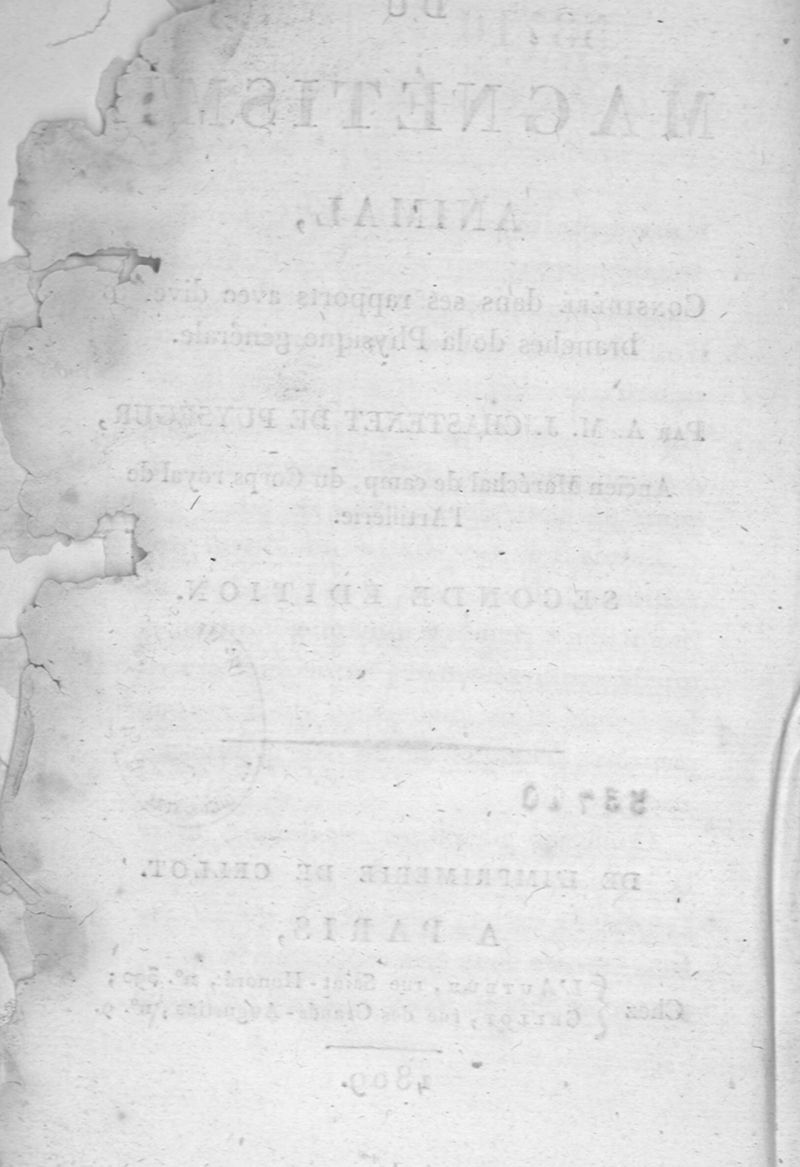 DU
MAGNÉTISME
ANIMAL,
CONSIDÉRÉ dans ses rapports avec
branches de la Physique générale.
PAR A. M. J. CHASTENET DE PUYSÉGUR,
Ancien Maréchal de camp, du Corps royal de
l'Artillerie.
SECONDE ÉDITION.
53740
DE L'IMPRIMERIE DE CELLOT.
A PARIS,
Chez L'AUTEUR, rue Saint-Honoré, n°. 390;
CELLOT, rue des Grands-Augustins, n°. 9.
1809.